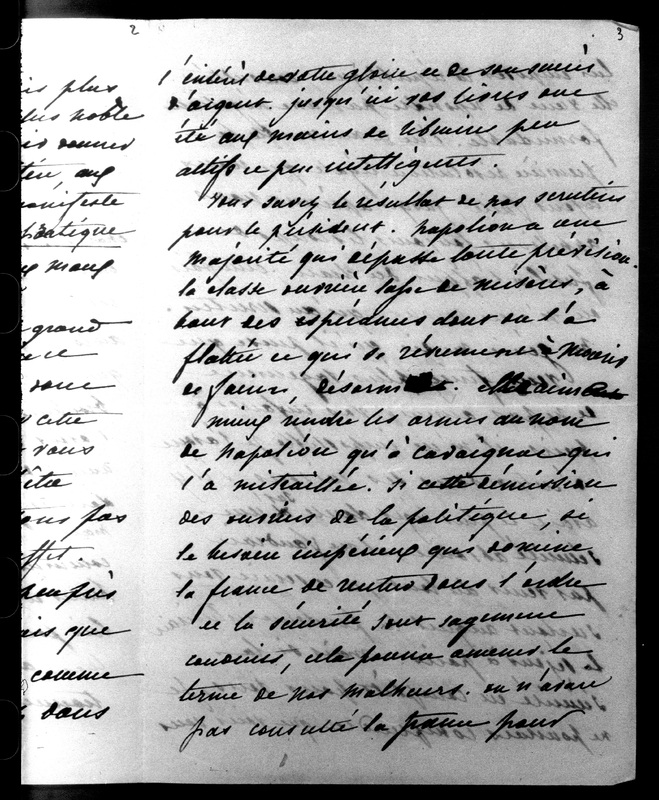 2
3
is plus
plus noble
is donner
aux
manifeste
politique
grand
donc
cette
vous
être
pas
que
comme
dans
l'intérêt de votre gloire et de son succès
d'argent. jusqu'ici vos livres ont
été aux mains de libraires peu
actifs et peu intelligents.
Vous savez le résultat de nos scrutins
pour le président. napoléon a une
majorité qui dépasse toute prévision.
la classe ouvrière lasse de misères, à
bout des espérances dont on l'a
flattée et qui se révement à moins
de fureur désormais. aiment
mieux rendre les armes au nom
de napoléon qu'à cavaignac qui
l'a mitraillée. si cette démission
des ouvriers de la politique, si
le besoin impérieux qui domine
la france de rentrer dans l'ordre
et la sécurité sont sagement
conduits, cela pourra amener le
terme de nos malheurs. on n'avait
pas consulté la france pour